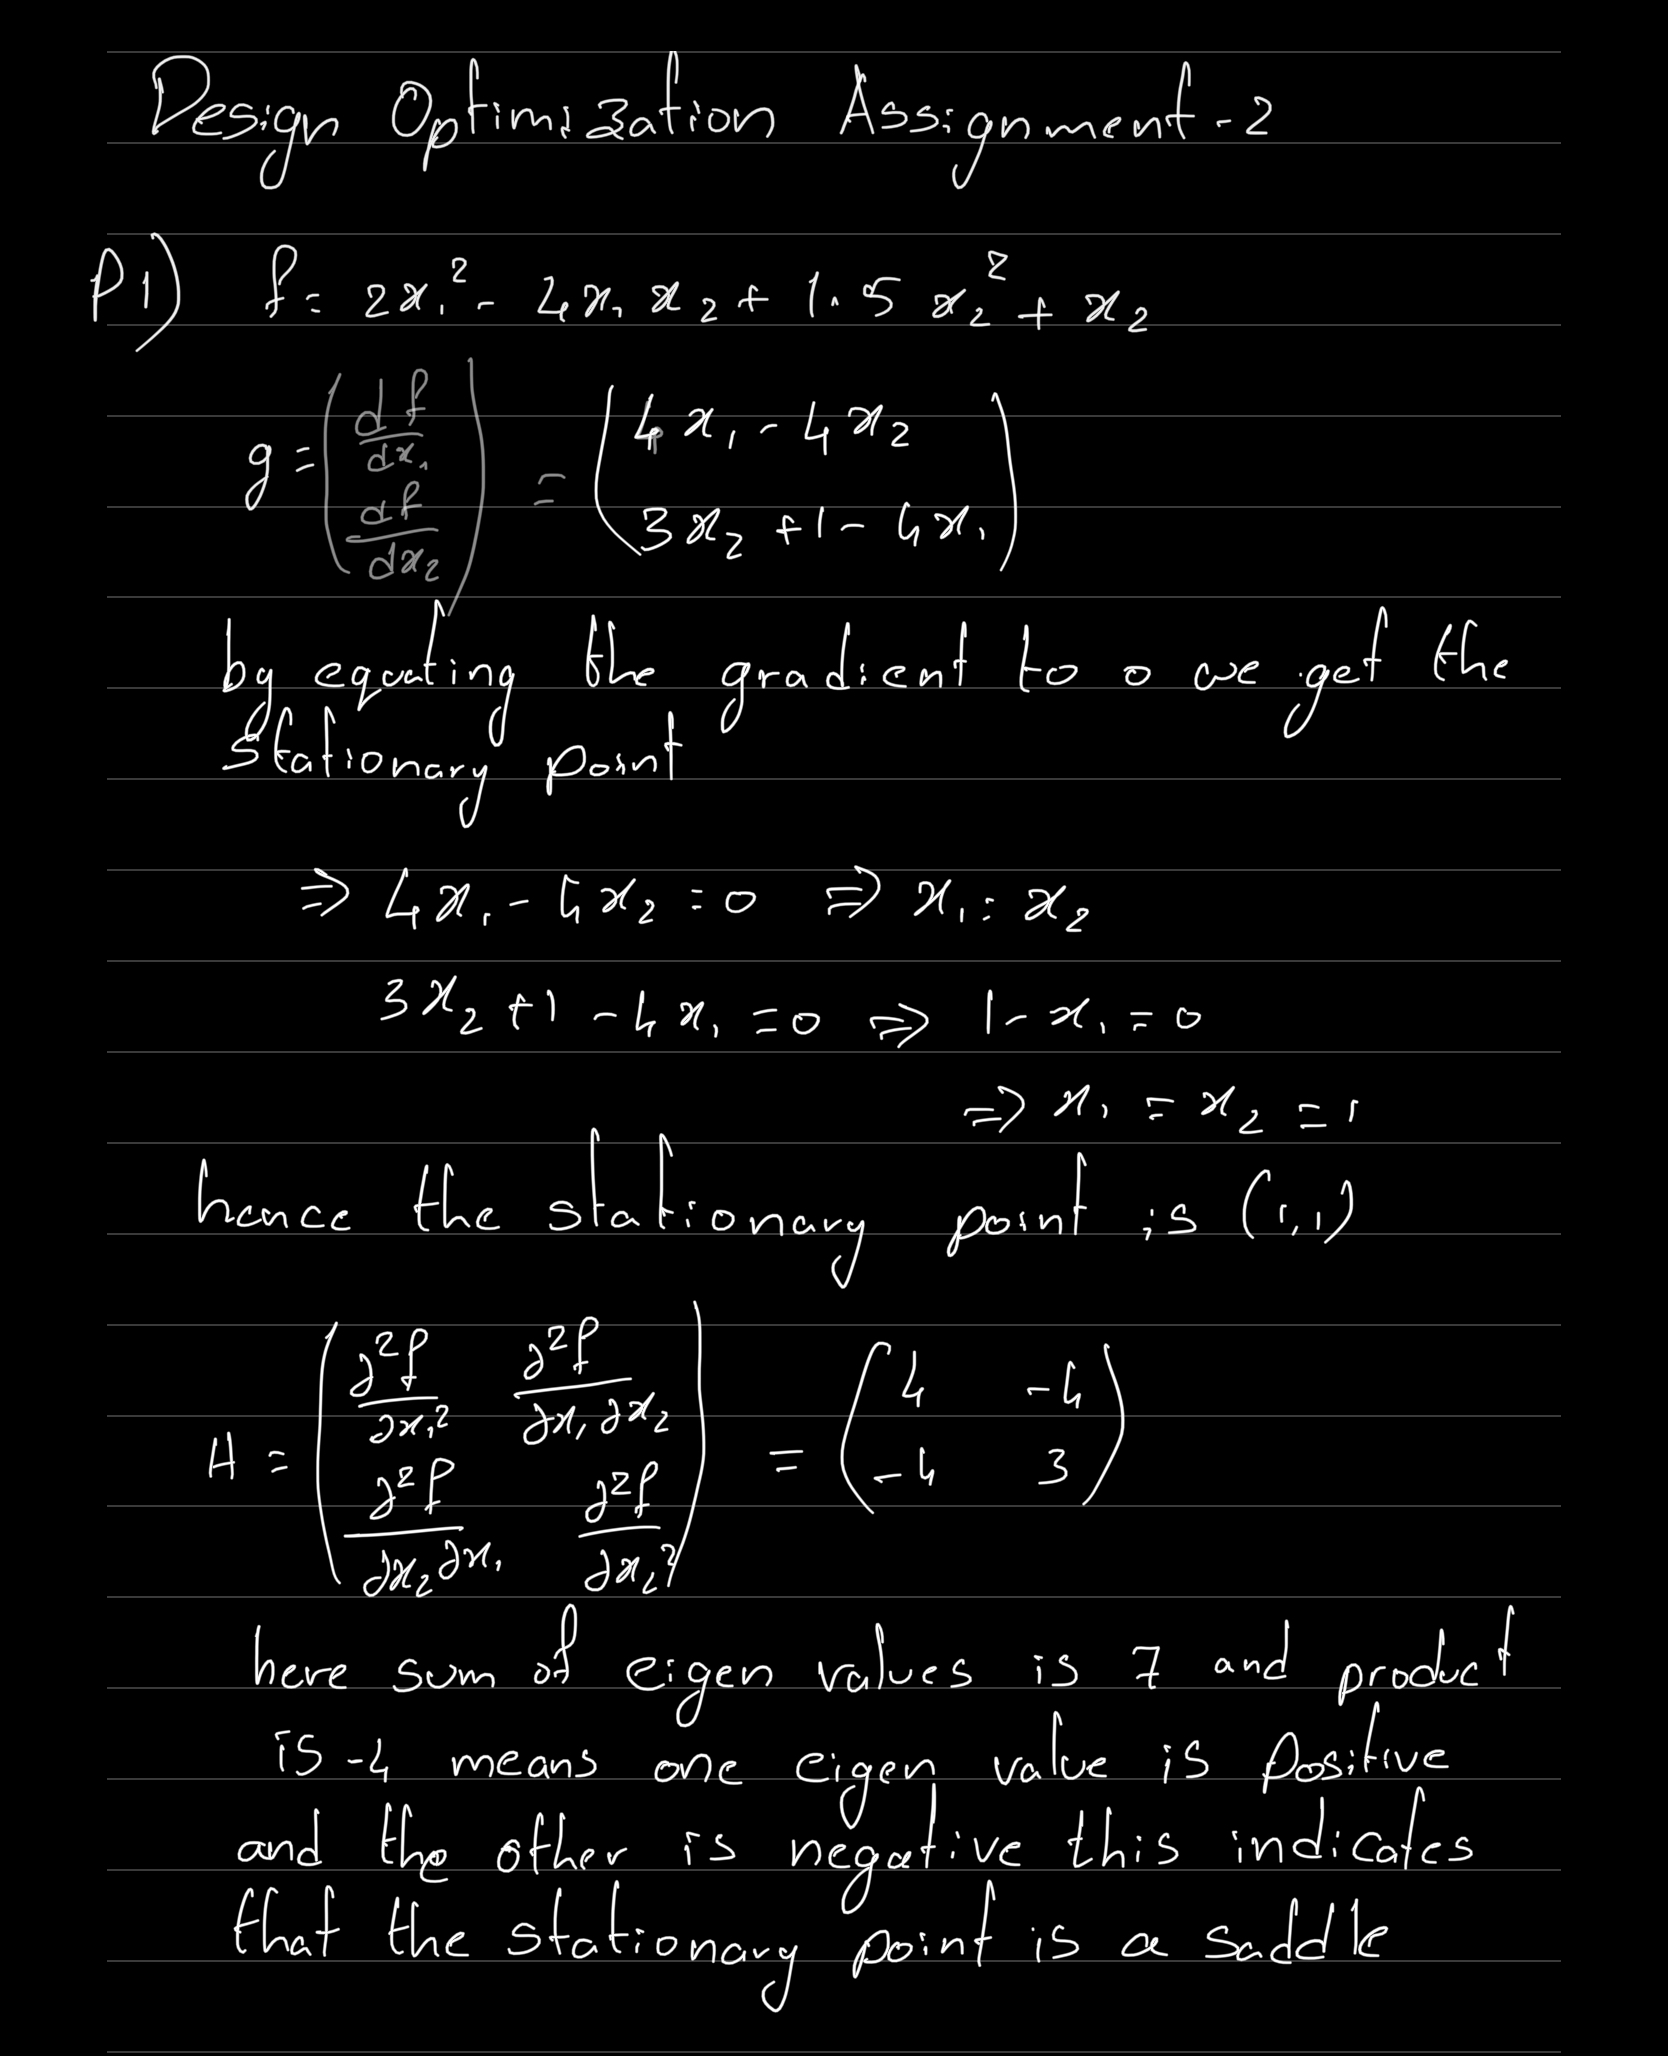 Design Optimization Assignment-2
P1) f = 2x₁² - 4x₁x₂ + 1.5x₂² + x₂
g = (df/dx₁ df/dx₂) = (4x₁ - 4x₂ 3x₂ + 1 - 4x₁)
by equating the gradient to 0 we get the
stationary point
⇒ 4x₁ - 4x₂ = 0 ⇒ x₁ = x₂
3x₂ + 1 - 4x₁ = 0 ⇒ 1 - x₁ = 0
⇒ x₁ = x₂ = 1
hence the stationary point is (1,1)
H = (∂²f/∂x₁² ∂²f/∂x₁∂x₂ ∂²f/∂x₂∂x₁ ∂²f/∂x₂²) = (4 -4 -4 3)
here sum of eigen values is 7 and product
is -4 means one eigen value is Positive
and the other is negative this indicates
that the stationary point is a saddle